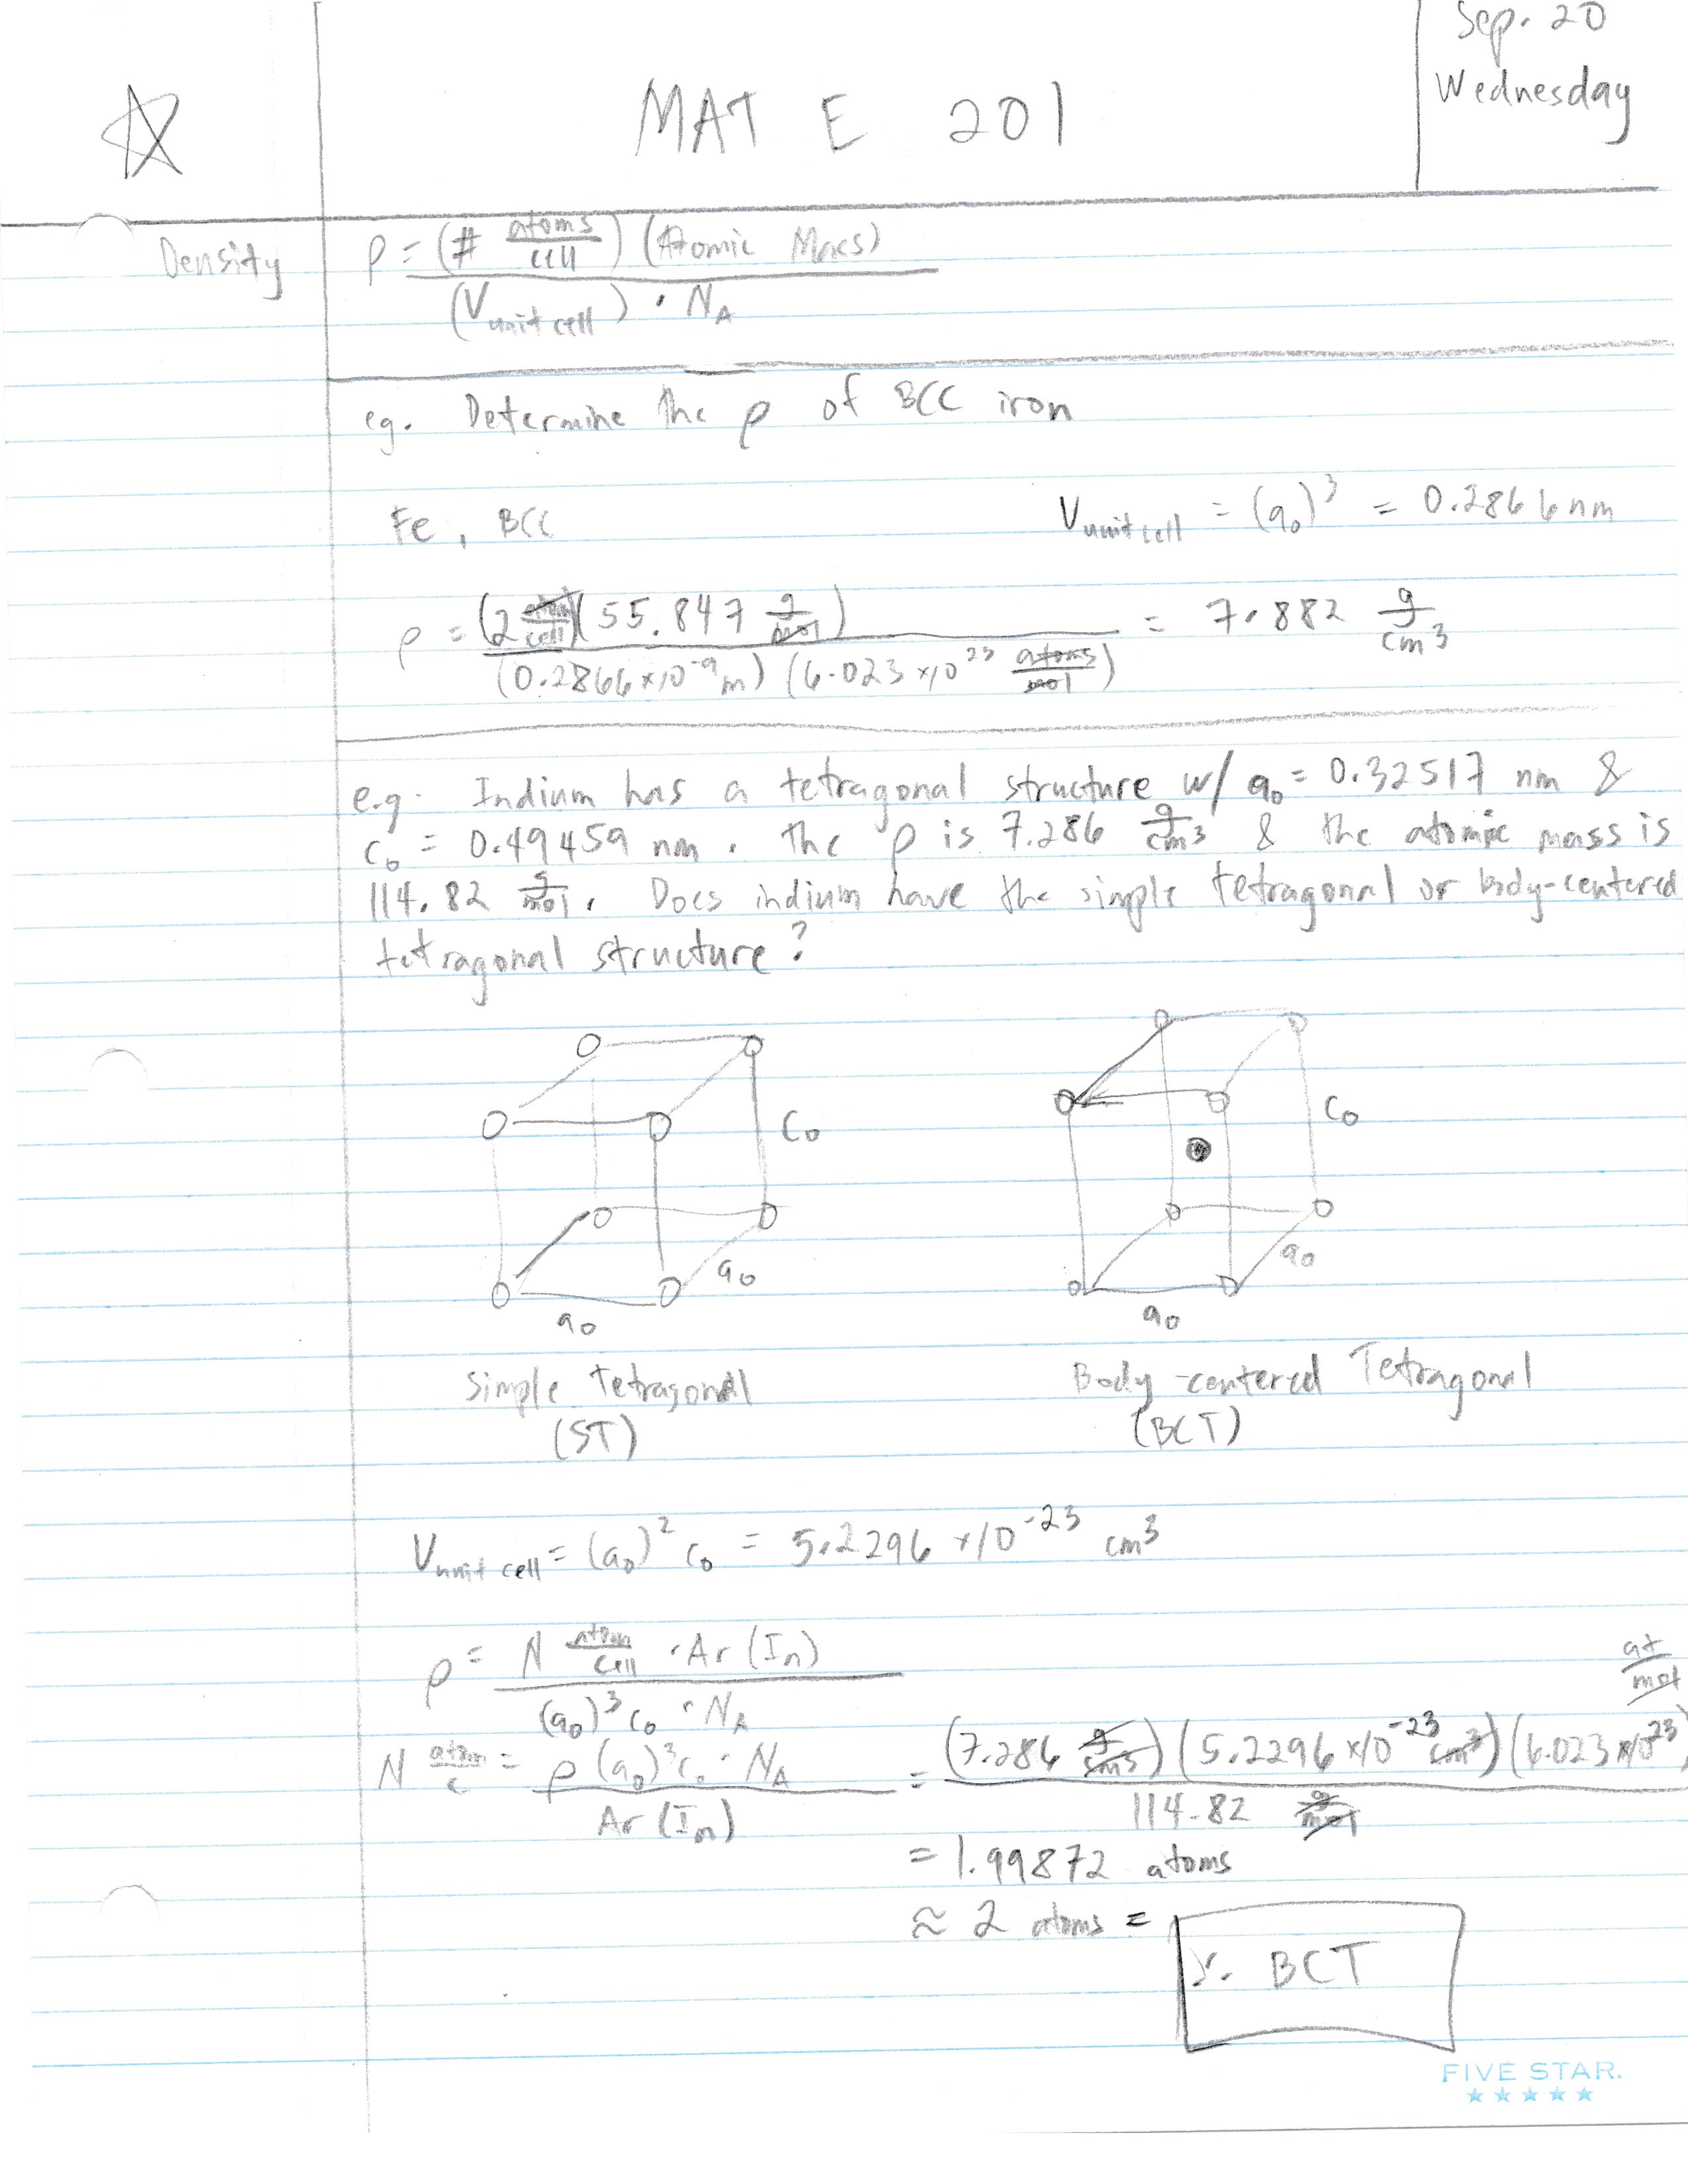 Sep. 20
Wednesday
MAT E 201
Density
ρ = (# atoms/cell) (Atomic Mass) / (V unit cell) · N_A
eg. Determine the ρ of BCC iron
Fe, BCC
V unit cell = (a₀)³ = 0.2866 nm
ρ = (2 atom/cell)(55.847 g/mol) / (0.2866 x10⁻⁹ m) (6.023 x10²³ atoms/mol) = 7.882 g/cm³
e.g. Indium has a tetragonal structure w/ a₀ = 0.32517 nm &
c₀ = 0.49459 nm. the ρ is 7.286 g/cm³ & the atomic mass is
114.82 g/mol. Does indium have the simple tetragonal or body-centered
tetragonal structure?
c₀
a₀
a₀
Simple Tetragonal
(ST)
c₀
a₀
a₀
Body-centered Tetragonal
(BCT)
V unit cell = (a₀)² c₀ = 5.2296 x10⁻²³ cm³
ρ = N atom/cell · Ar (In) / (a₀)³ c₀ · N_A
N atom/c = ρ (a₀)³ c₀ · N_A / Ar (In) = (7.286 g/cm³) (5.2296 x10⁻²³ cm³) (6.023 x10²³) at/mol / 114.82 g/mol
= 1.99872 atoms
≈ 2 atoms = ∴ BCT
FIVE STAR.